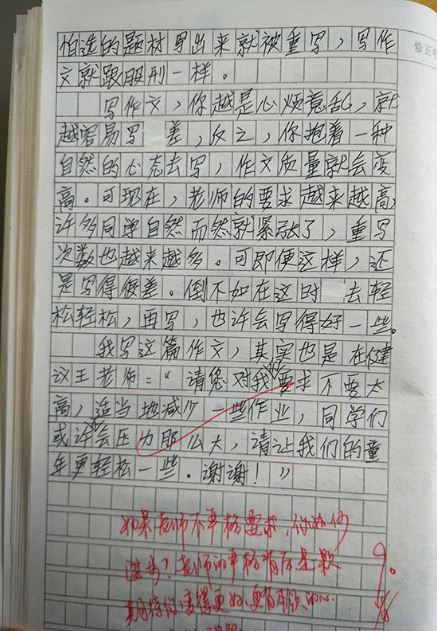 怕选的题材写出来就被重写，写作
文就跟服刑一样。
写作文，你越是心烦意乱，就
越容易写差，反之，你抱着一种
自然的心态去写，作文质量就会变
高。可现在，老师的要求越来越高，
许多同学自然而然就紧张了，重写
次数也越来越多。可即便这样，还
是写得很差。倒不如在这时去轻
松轻松，再写，也许会写得好一些。
我写这篇作文，其实也是在健
议王老师：“请您对我们要求不要太
高，适当地减少一些作业，同学们
或许会压力那么大，请让我们的童
年更轻松一些。谢谢！”
如果老师不严格要求，你
进步？老师的严格背后是
期待你 更好，更有
修正